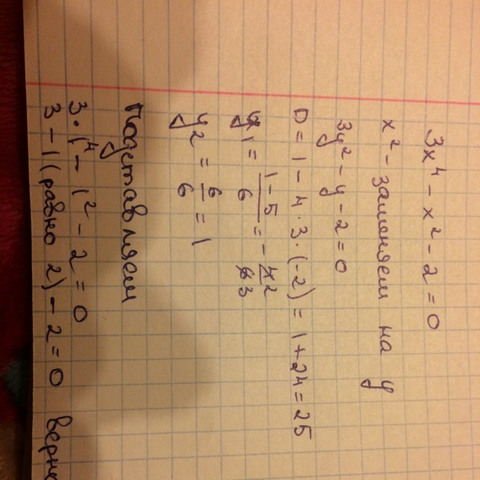 3x⁴ - x² - 2 = 0
x² - заменяем на y
3y² - y - 2 = 0
D = 1 - 4 · 3 · (-2) = 1 + 24 = 25
y₁ = (1 - 5)/6 = - 4̶ 2/6̶ 3
y₂ = 6/6 = 1
Подставляем
3 · 1⁴ - 1² - 2 = 0
3 - 1 (равно 2) - 2 = 0 верно